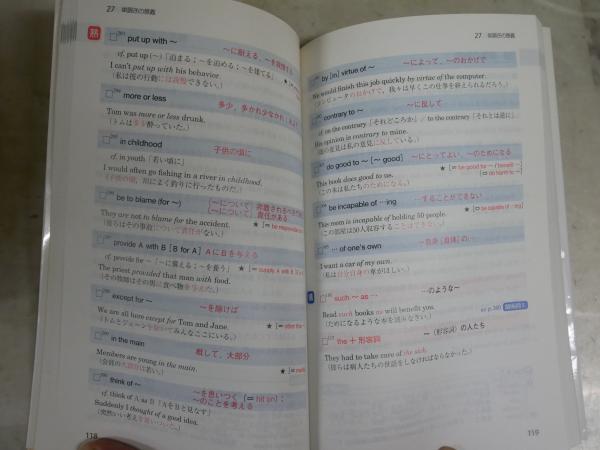 27 単語帳の意義
熟
put up with ～
～に耐える、～を我慢する
cf. put up (～)「泊まる；～を泊める；～を建てる」
I can't put up with his behavior.
（私は彼の行動には我慢できない。）
more or less
多少，多かれ少なかれ，およそ
Tom was more or less drunk.
（トムは多少酔っていた。）
in childhood
子供の頃に
cf. in youth「若い頃に」
I would often go fishing in a river in childhood.
（子供の頃，川によく釣りに行ったものだ。）
be to blame (for ～)
They are not to blame for the accident.
（彼らはその事故について責任がない。）
provide A with B [B for A]
AにBを与える
cf. provide for ～「～に備える；～を養う」
The priest provided that man with food.
（その牧師はその男に食べ物を与えた。）
except for ～
～を除けば
We are all here except for Tom and Jane.
（トムとジェーンを除いてみんなここにいる。）
in the main
概して，大部分
Members are young in the main.
（会員の大部分は若い。）
think of ～
～を思いつく (= hit on)；
～のことを考える
cf. think of A as B「AをBと見なす」
Suddenly I thought of a good idea.
（突然いい考えを思いついた。）
118
27
by [in] virtue of ～
～によって，～のおかげで
We would finish this job quickly by virtue of the computer.
（コンピュータのおかげで，我々は早くこの仕事を終えられるだろう。）
contrary to ～
～に反して
cf. on the contrary「それどころか」// to the contrary「それとは逆に」
His opinion is contrary to mine.
（彼の意見は私の意見に反している。）
do good to ～ [～ good]
～にとってよい，～のためになる
This book does good to us.
（この本は私たちのためになる。）
be incapable of …ing
…することができない
This room is incapable of holding 50 people.
（この部屋は50人収容することはできない。）
… of one's own
I want a car of my own.
（私は自分自身の車がほしい。）
構
such ～ as …
…のような～
Read such books as will benefit you.
（ためになるような本を読みなさい。）
the ＋ 形容詞
～（形容詞）の人たち
They had to take care of the sick.
（彼らは病人たちの世話をしなければならなかった。）
119